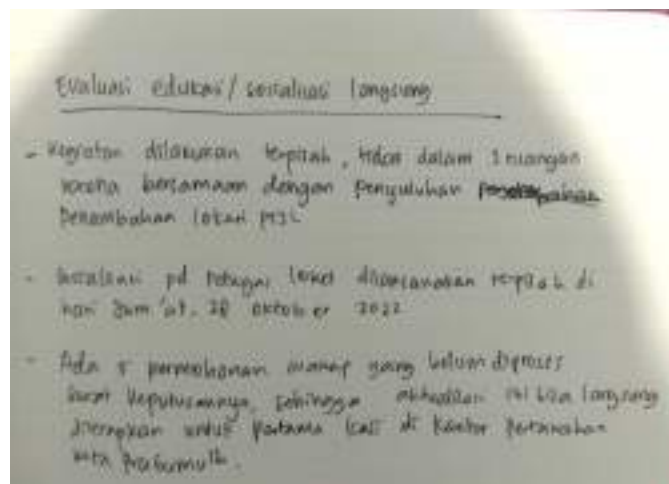 Evaluasi edukasi / sosialisasi langsung
- Kegiatan dilakukan terpisah, tidak dalam 1 ruangan
karena bersamaan dengan Penyuluhan
Penambahan lokasi PTSL
- Sosialisasi pd Petugas loket dilaksanakan terpisah di
hari Jum'at, 28 Oktober 2022
- Ada 5 permohonan yang belum diproses
Surat Keputusannya, sehingga ini bisa langsung
diterapkan untuk Pertama kali di Kantor Pertanahan
Kota Prabumulih.